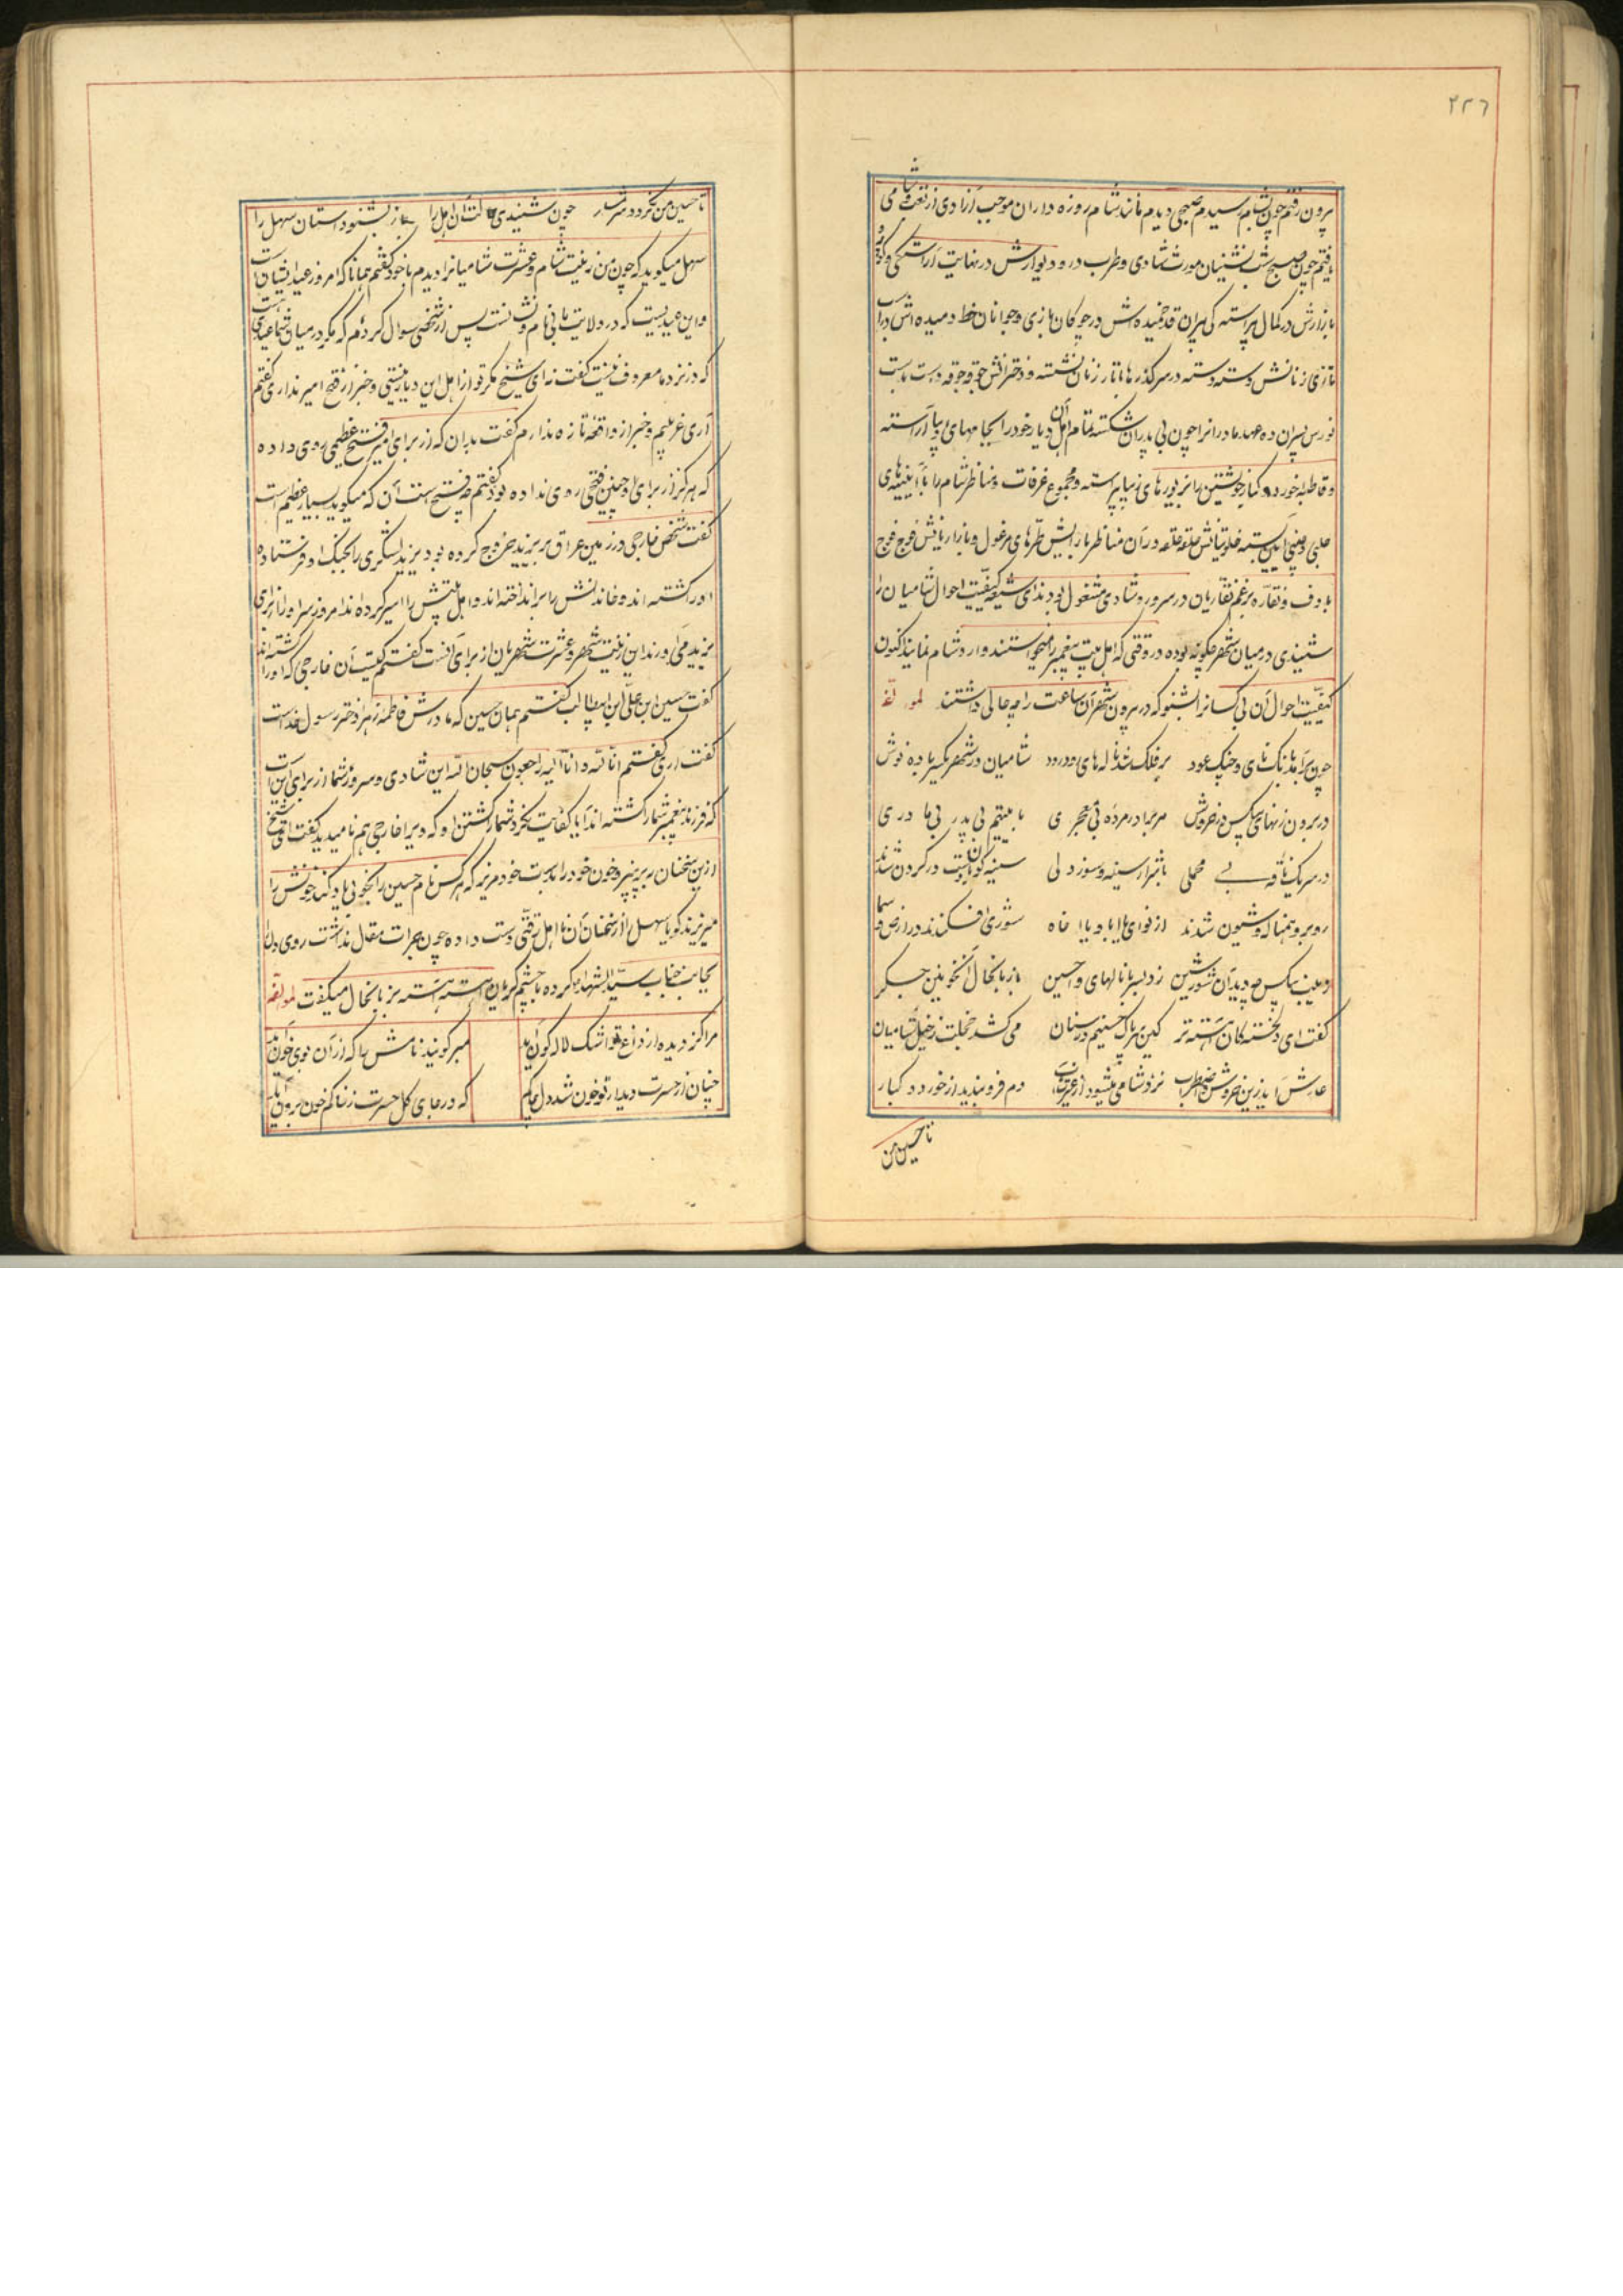 ۲۲٦
برون رفتم چون بشام رسیدم صبحی دیدم مانند شام روزه داران موجب آزادی از تعب شامی
یافتم چون صبح شب نشینان مورث شادی و طرب در و دیوارش در نهایت آراستگی و کوچه و
بازارش در کمال پیراستگی پیران قد خمیده اش در چوکان بازی و جوانان خط دمیده اش در اسب
تازی زنانش دسته دسته در سر کذرها با تار زنان نشسته و دخترانش جوقه جوقه دست بدست
نورس پسران ده عهد مادرانرا چون بی پدران شکسته تمام اهل آن دیار خود را بجامهای دیبا آراسته
و قاطبه خورد و کبار خویشتن را بزیورهای زیبا پیراسته و مجموع غرفات و مناظر شام را با آیینه های
حلبی و چینی آیین بسته خلوتیانش حلقه حلقه در آن مناظر با زلیش طره های مرغول و بازاریانش فوج فوج
با دف و نقاره برغم نقاریان در سرور و شادی مشغول بودند ای شیعه کیفیت احوال شامیان را
شنیدی در میان شهر چکونه بوده در وقتی که اهل بیت پیغمبر را میخواستند وارد شام نمایند اکنون
کیفیت احوال آن بی کسانرا بشنو که در بیرون شهر آن ساعت را چه حالی داشتند لمولفه
چون برآمد بانک نای و چنک و عود بر فلک شد ناله های رود رود شامیان در شهر یکسر باده نوش
در برون زنهای بیکس در خروش هر برادر مرده بی معجری با یتیم بی پدر بی مادری
در سر یک ناقه بی محملی با شرار سینه و سوز دلی سینه کوبان بست در کردن شدند
روبرو بهر ناله و شیون شدند از نوای یا ابا و یا اخاه شوری افکندند در ارض و سما
زینب بیکس چو دید آن شور و شین زد بسر با ناله های وا حسین باز با نخال آن خونین جگر
گفت ای دلخستکان آهسته تر کین سر پاک حسینم در سنان می کشد خجلت ز خیل شامیان
عارش آید زین خروش و اضطراب نزد شامی میشود از غیرت آب دم فرو بندید از خورد و کبار
تا حسین من
تا حسین من نکردد شرمسار چون شنیدی حالت آن اهل را باز بشنو داستان سهل را
سهل میکوید که چون من زینت شام و عشرت شامیانرا دیدم با خود گفتم همانا که امروز عید ایشان است
و این عیدیست که در ولایت ما بی نام و نشانست پس از شخصی سوال کردم که مکر در میان شما عیدی هست
که در نزد ما معروف نیست گفت نه ای شیخ مکر تو از اهل این دیار نیستی و خبر از فتح امیر نداری گفتم
آری غریبم و خبر از واقعه تازه ندارم گفت بدان که از برای امیر فتح عظیمی روی داده
که هرکز از برای او چنین فتحی روی نداده بود گفتم چه فتح است آن که میکوید بسیار عظیم است
گفت شخص خارجی در زمین عراق بر یزید خروج کرده بود یزید لشکری را بجنک او فرستاده
اورا کشته اند و خاندانش را برانداخته اند و اهل بیتش را اسیر کرده اند امروز سر او را از برای
یزید می آورند این زینت شهر و عشرت شهریان از برای آنست گفتم کیست آن خارجی که او را کشته اند
گفت حسین ابن علی ابن ابیطالب گفتم همان حسین که مادرش فاطمه زهرا دختر رسول خداست
گفت آری گفتم انا لله و انا الیه راجعون سبحان الله این شادی و سرور شما از برای آن است
که فرزند پیغمبر شما را کشته اند آیا کفایت نکرد شما را کشتن او که دیکر او را خارجی هم نامیدید گفت ای شیخ
ازین سخنان بپرهیز و خون خود را بدست خود مریز که هر کس نام حسین را بخوبی یاد کند خونش را
میریزند گویا سهل را از سخنان آن نااهل رقتی دست داده چون جرات مقال نداشت روی دل را
بجانب جناب سید الشهدا کرده با چشم گریان آهسته آهسته بزبانحال میگفت لمولفه
مرا کز دیده از داغ تو اشک لاله گون آید مبر گویند نامش را که از آن بوی خون آید
چنان از حسرت دیدار تو خون شد دل زارم که در جای گل حسرت ز خاکم خون برون آید